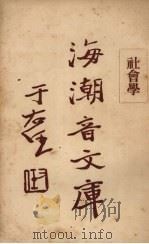 社會學
海潮音文庫
于右任